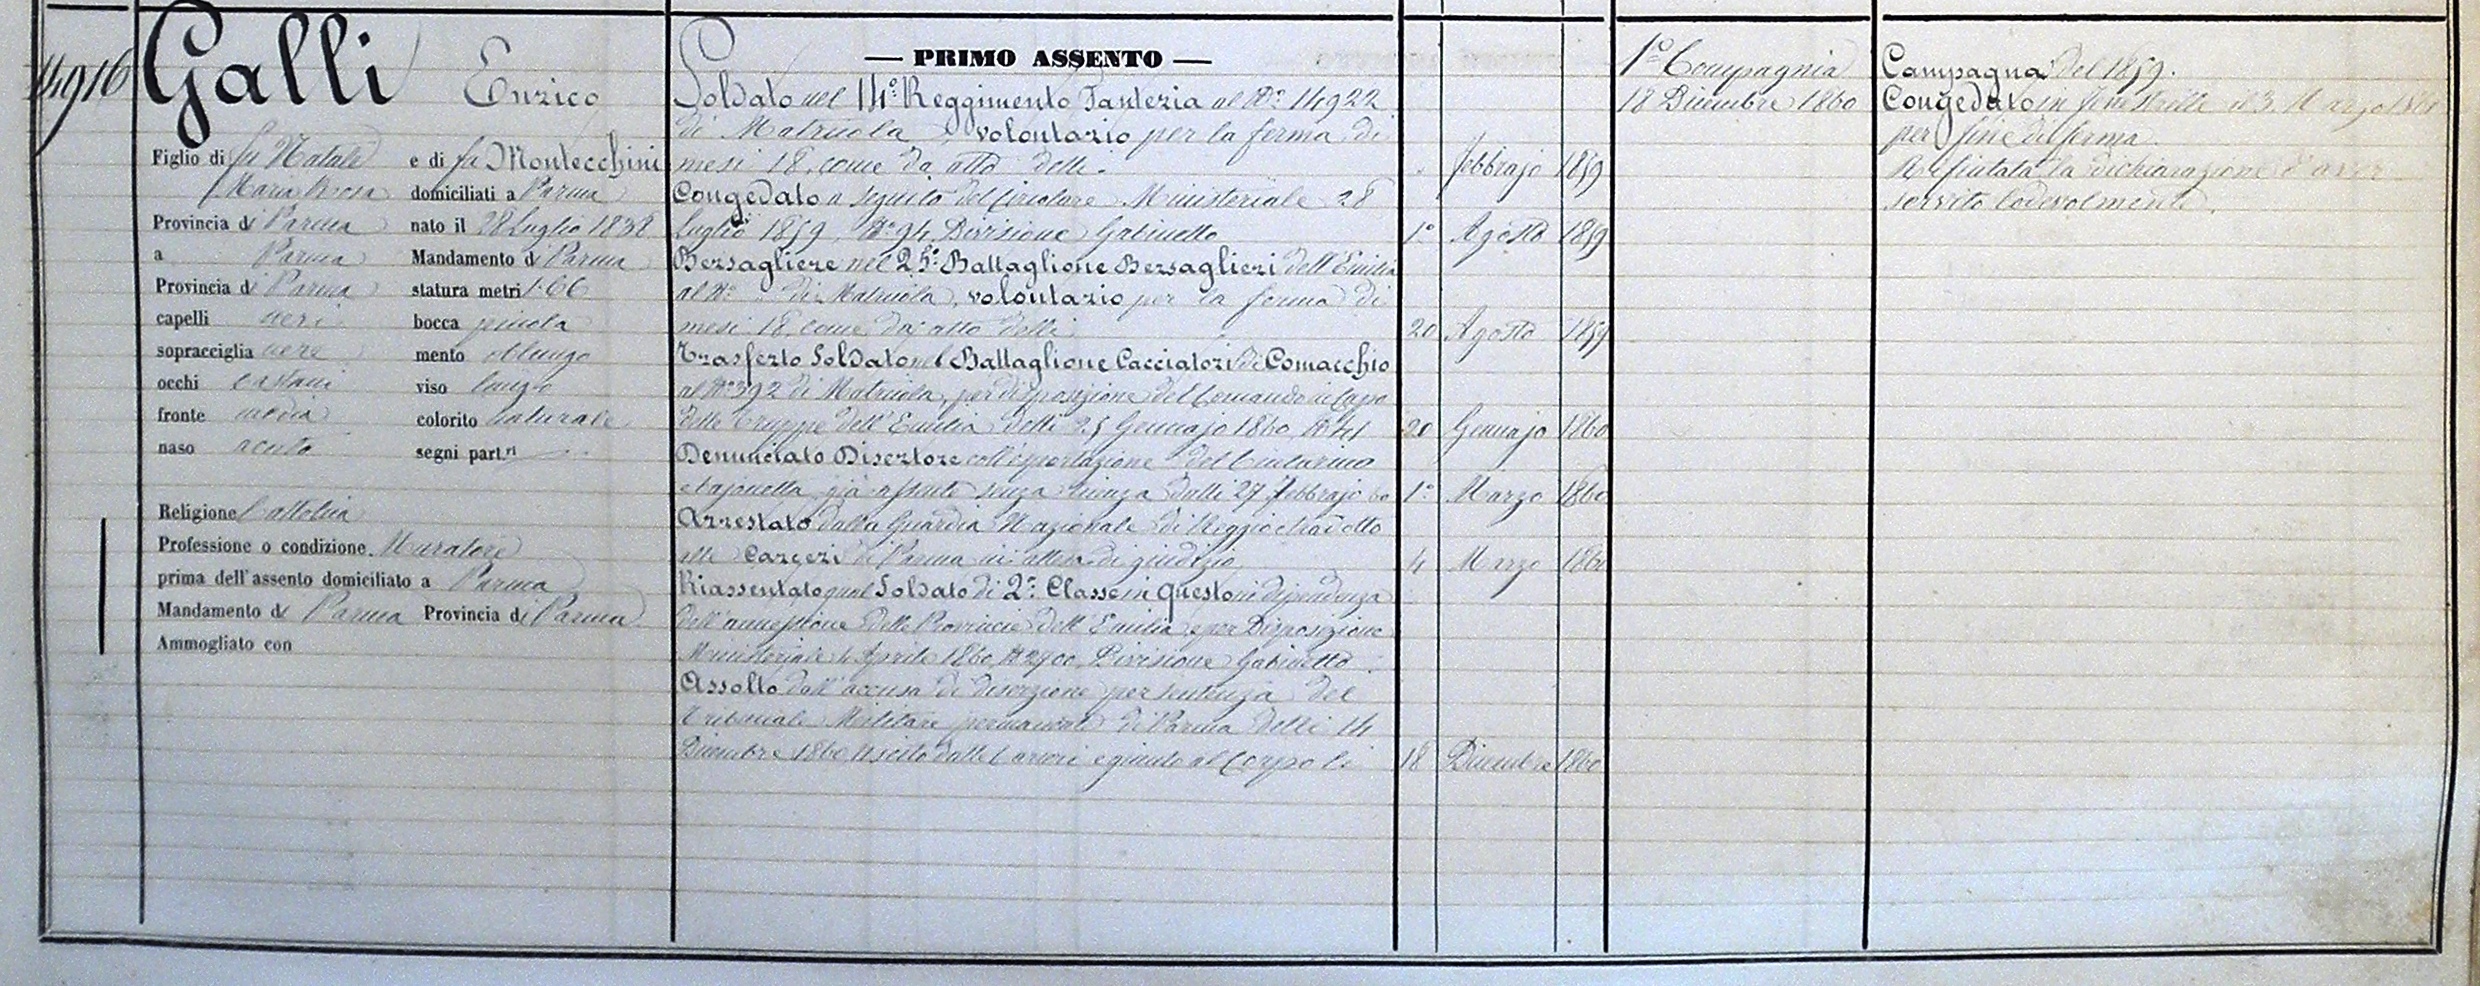 14916
Galli Enrico
Figlio di fu Natale e di fu Montecchini
Maria Rosa domiciliati a Parma
Provincia di Parma nato il 28 Luglio 1838
a Parma Mandamento di Parma
Provincia di Parma statura metri 1.66
capelli neri bocca piccola
sopracciglia nere mento oblungo
occhi castani viso lungo
fronte media colorito naturale
naso acuto segni part.ri
Religione Cattolica
Professione o condizione Muratore
prima dell'assento domiciliato a Parma
Mandamento di Parma Provincia di Parma
Ammogliato con
— PRIMO ASSENTO —
Soldato nel 14° Reggimento Fanteria al N° 14922
di Matricola, volontario per la ferma di
mesi 18, come da atto delli. febbrajo 1859
Congedato a seguito del Circolare Ministeriale 28
luglio 1859, N° 94, Divisione Gabinetto 1° Agosto 1859
Bersagliere nel 25° Battaglione Bersaglieri dell'Emilia
al N° di Matricola, volontario per la ferma di
mesi 18, come da atto delli 20 Agosto 1859
Trasferto Soldato nel Battaglione Cacciatori di Comacchio
al N° 392 di Matricola, per disposizione del Comando in Capo
delle Truppe dell'Emilia delli 25 Gennajo 1860, N° 41 20 Gennajo 1860
Denunciato Disertore coll'esportazione del Cinturino
e bajonetta, già assente senza licenza dalli 27 febbrajo 60 1° Marzo 1860
Arrestato dalla Guardia Nazionale di Reggio e tradotto
alle Carceri di Parma in attesa di giudizio 4 Marzo 1860
Riassentato qual Soldato di 2ª Classe in Questo in dipendenza
dell'annessione delle Provincie dell'Emilia e per Disposizione
Ministeriale 4 Aprile 1860, N° 2900, Divisione Gabinetto.
Assolto dall'accusa di diserzione per sentenza del
Tribunale Militare permanente di Parma delli 14
Dicembre 1860 Uscito dalle Carceri e giunto al Corpo li 18 Dicembre 1860
1ª Compagnia
18 Dicembre 1860
Campagna del 1859.
Congedato in Fenestrelle il 3 Marzo 1861
per fine di ferma.
Rifiutata la dichiarazione d'aver
servito lodevolmente.